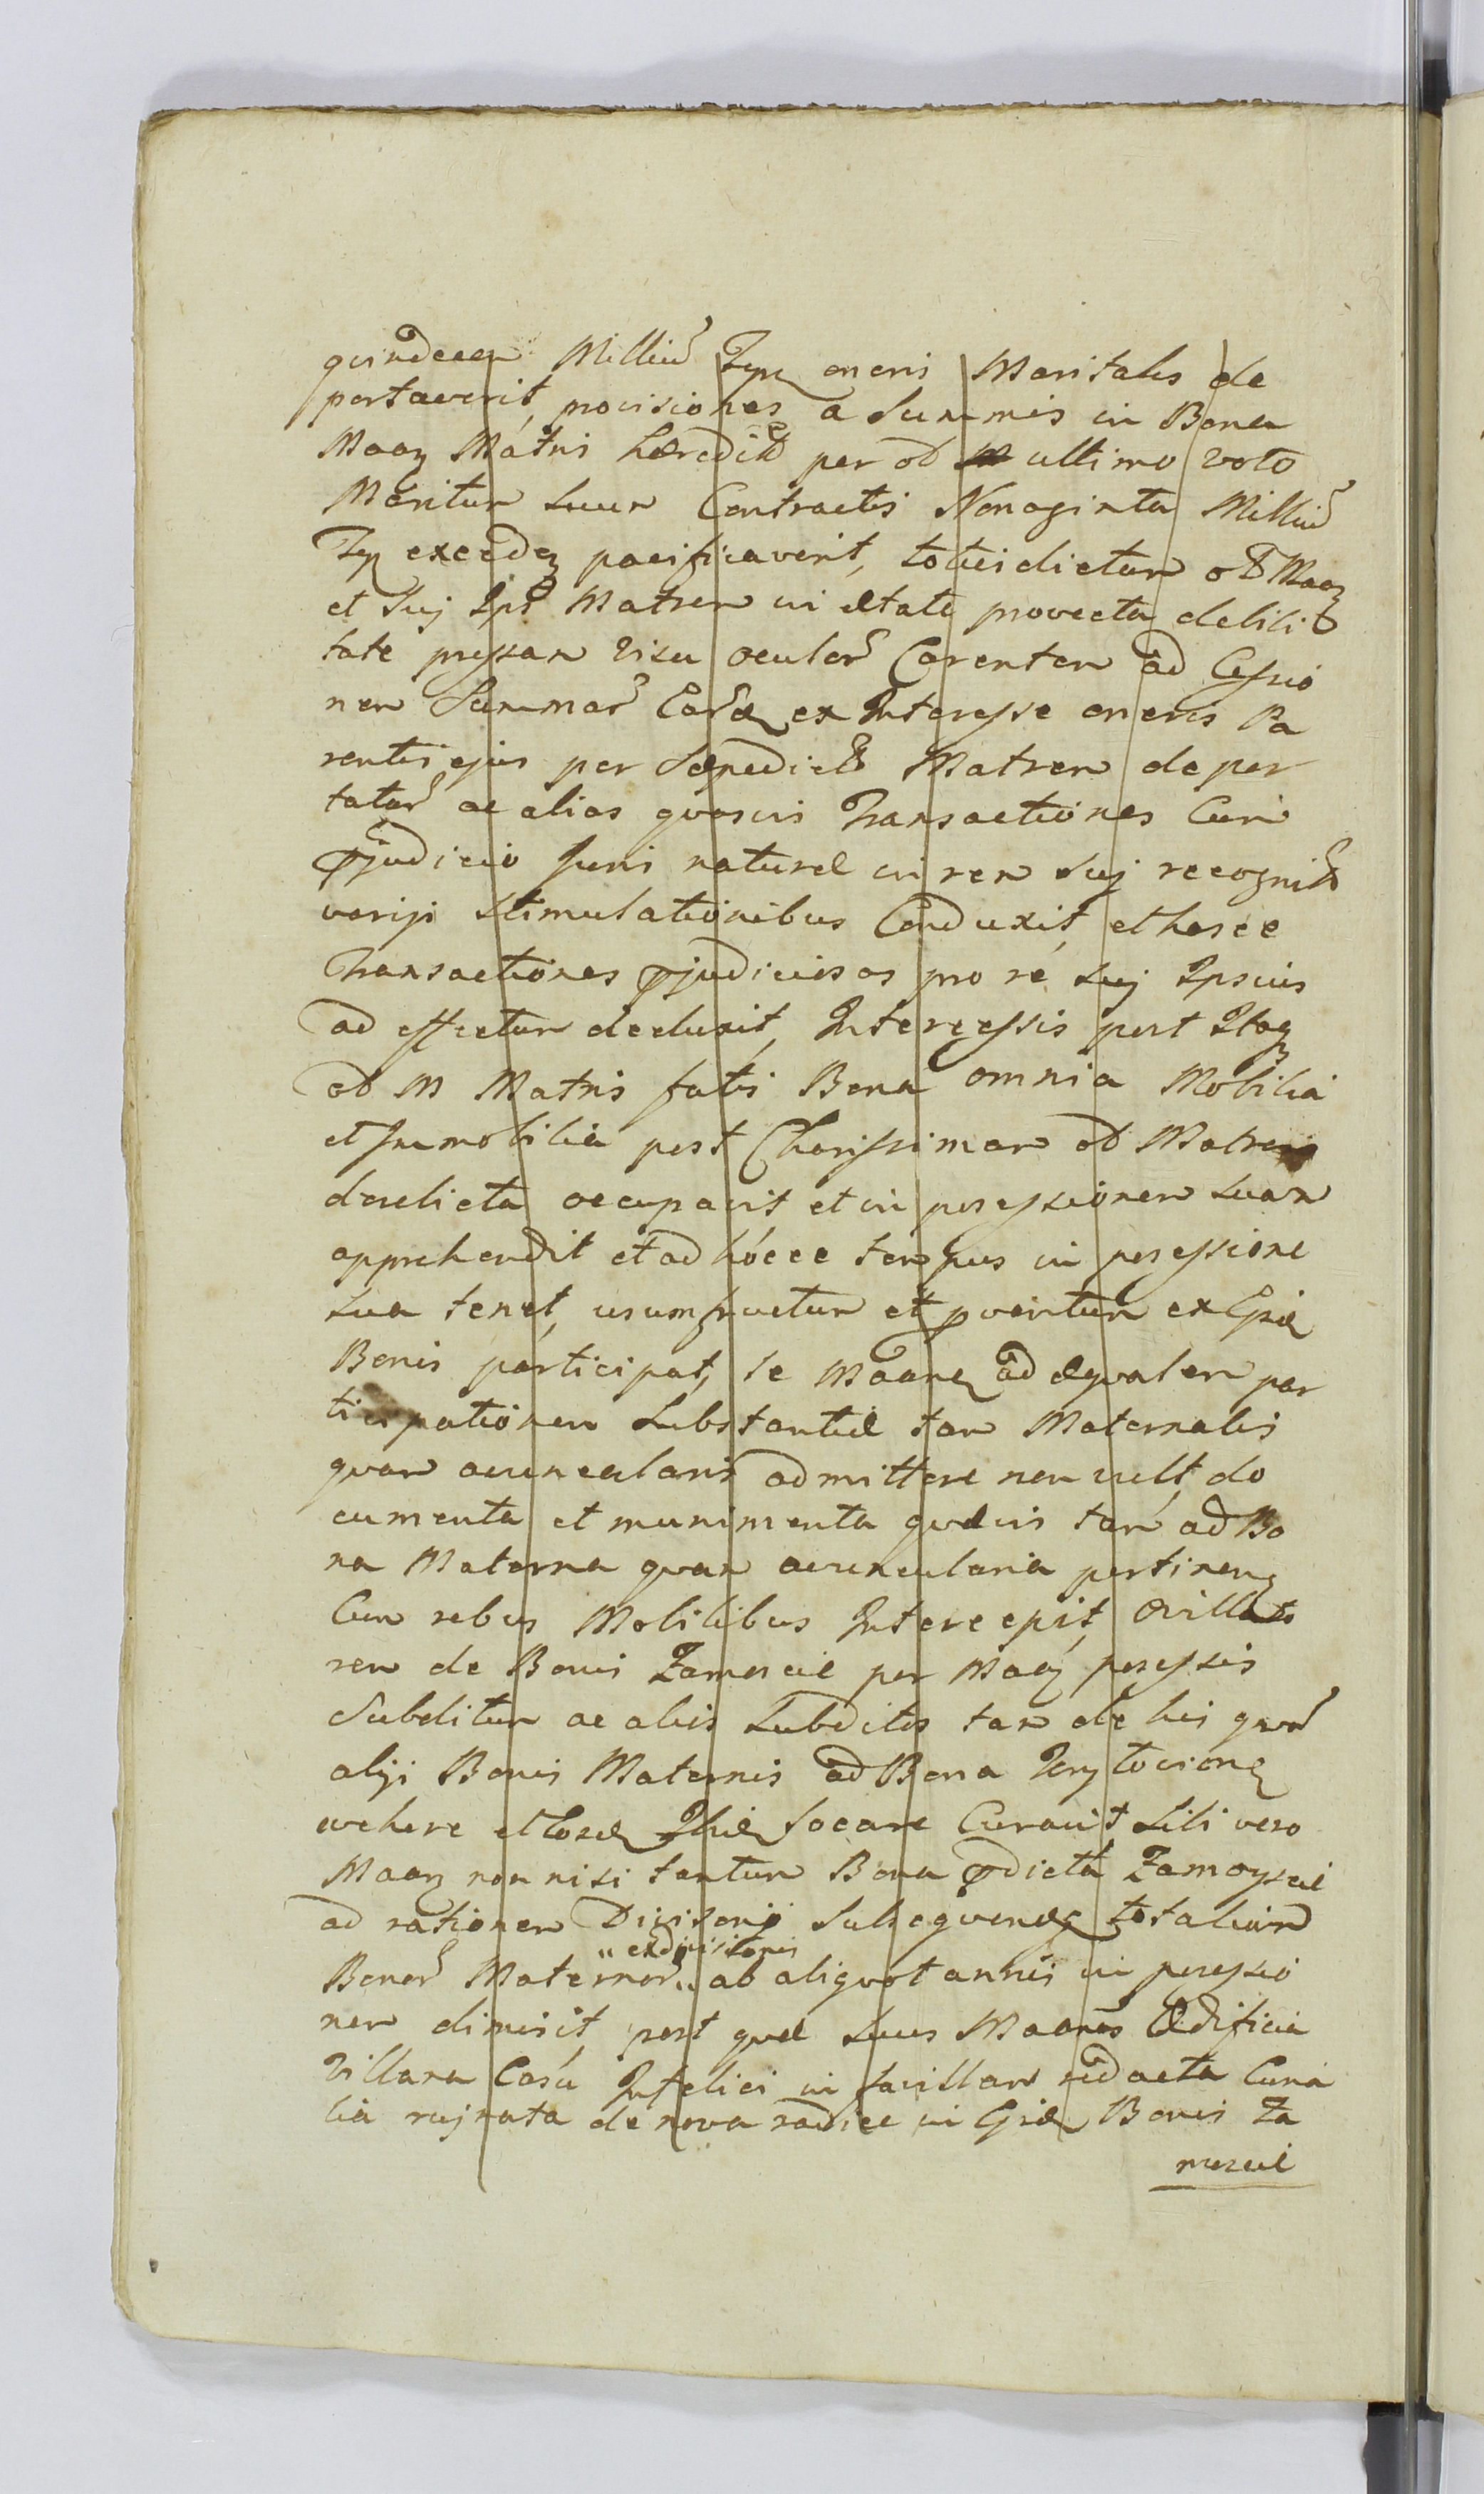 quindecem Milliu Zyn oneris Maritalis de
portaverit, provisiones a Summis in Bona
Maoy Matris haeredit per od ultimo voto
Maritum suum Contractis Nonaginta Milliu
Zy excedey pacificaverit, toties dictam od Maoy
et Suj Ips Matrem in aetate provecta debili
tate pressam visu oculor Carentem ad Cessio
nem Summar Eard ex Interesse oneris Pa
rentis ejus per Saepedict Matrem depor
tatar ac alias quasvis Transactiones Cum
pjudicio Juris naturae in rem suj recognit
varijs stimulationibus Conduxit, et hasce
Transactiones pjudiciosas pro re suj Ipsius
ad effectum deduxit, Intercessis post Itaq
od M Matris fatis Bona omnia Mobilia
et Immobilia post Charissimam od Matrem
derelicta occupavit et in possessionem suam
apprehendit et ad hocce tempus in possessione
sua tenet, usumfructum et pventum ex
Bonis participat, se Maarey ad aequalem par
ticipationem Substantiae tam Maternalis
quam avuncularis admittere non vult, do
cumenta et munimenta quaevis tam ad Bo
na Materna quam avuncularia pertineny
Cum rebus Mobilibus Intercepit,
rem de Bonis Zamoscie per Maoy possessis
Subditum ac aliis Subditos tam de his quam
alijs Bonis Maternis ad Bona
vehere et locare Curavit, Sibi vero
Maoy non nisi tantum Bona pdicta Zamoyscie
ad rationem Divisorij Subsequendae totalium
Bonor Maternor " exdivisionis " ab aliquot annis in possessio
nem dimisit, post quae suus Maares Aedificia
Villana Casu Infelici in favillam redacta Curia
lia rujnata de nova radice in Bonis Za
moscie